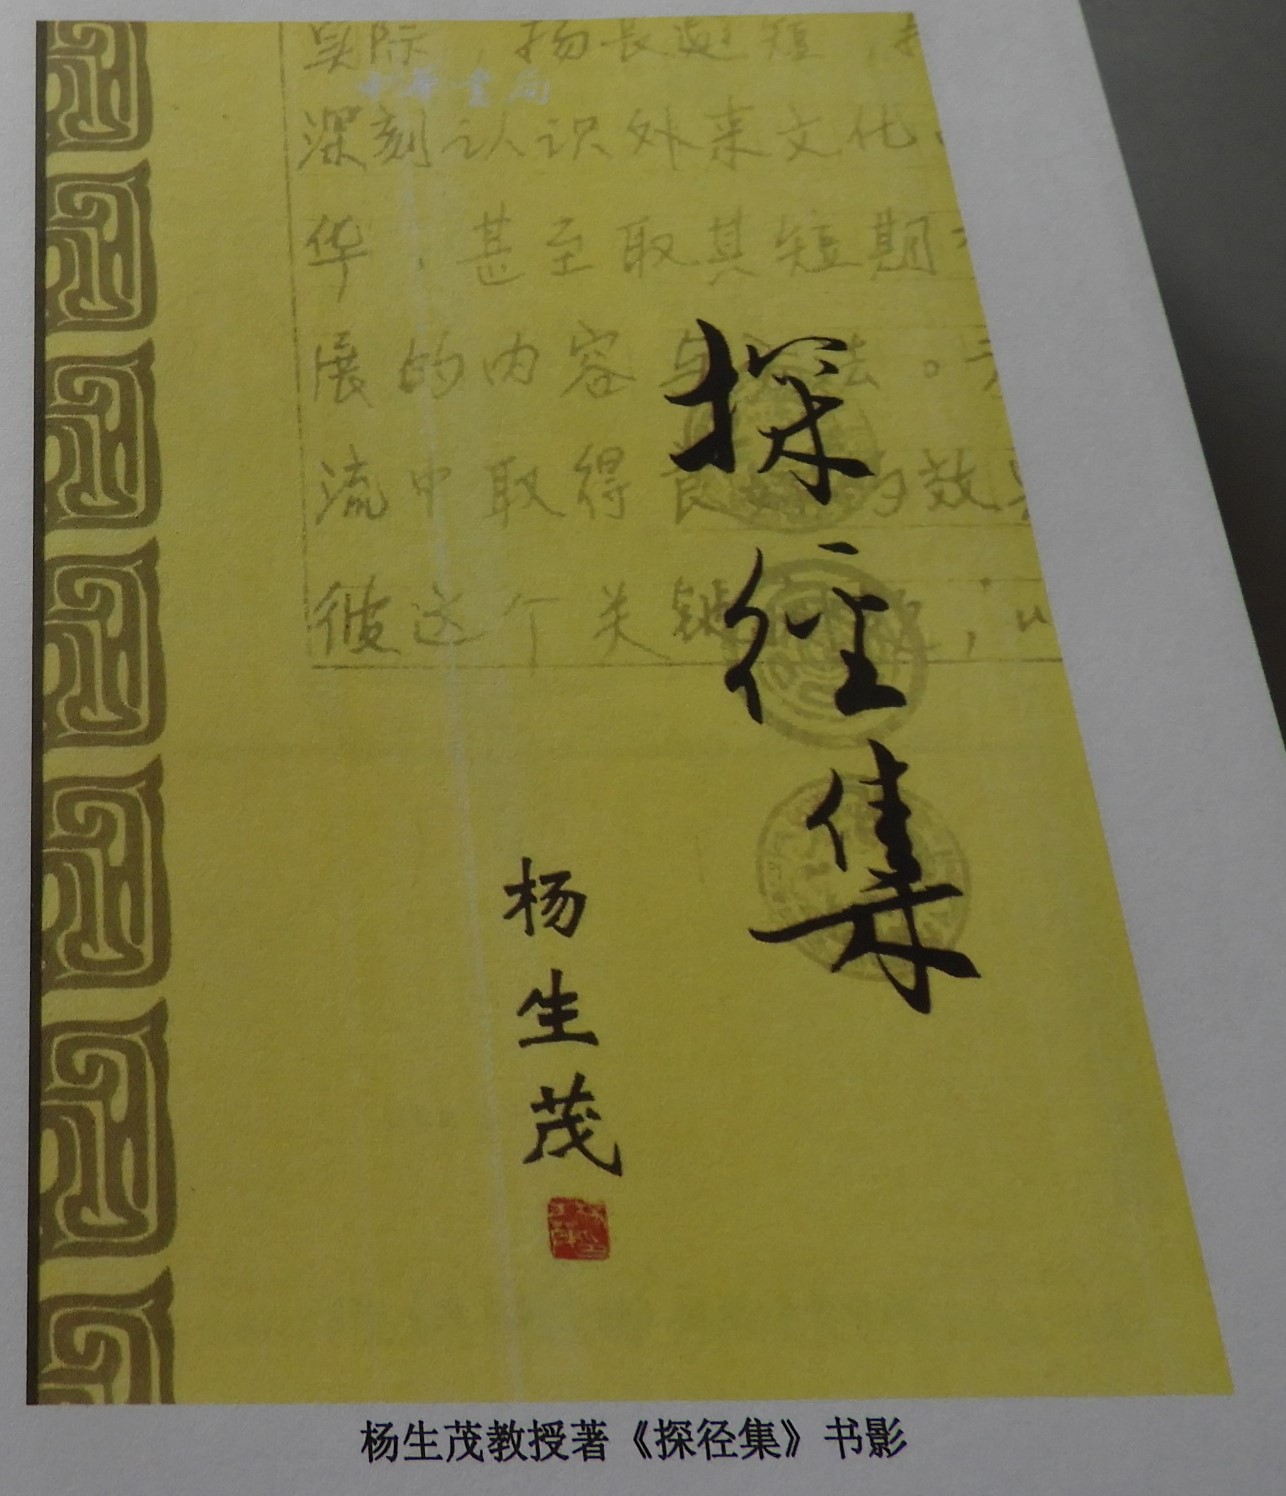 实际，扬长避短，
中华书局
深刻认识外来文化。
华，甚至取其短期
展的内容与方法。
流中取得良好的效果
彼这个关键问题，
探径集
杨生茂
杨生茂教授著《探径集》书影